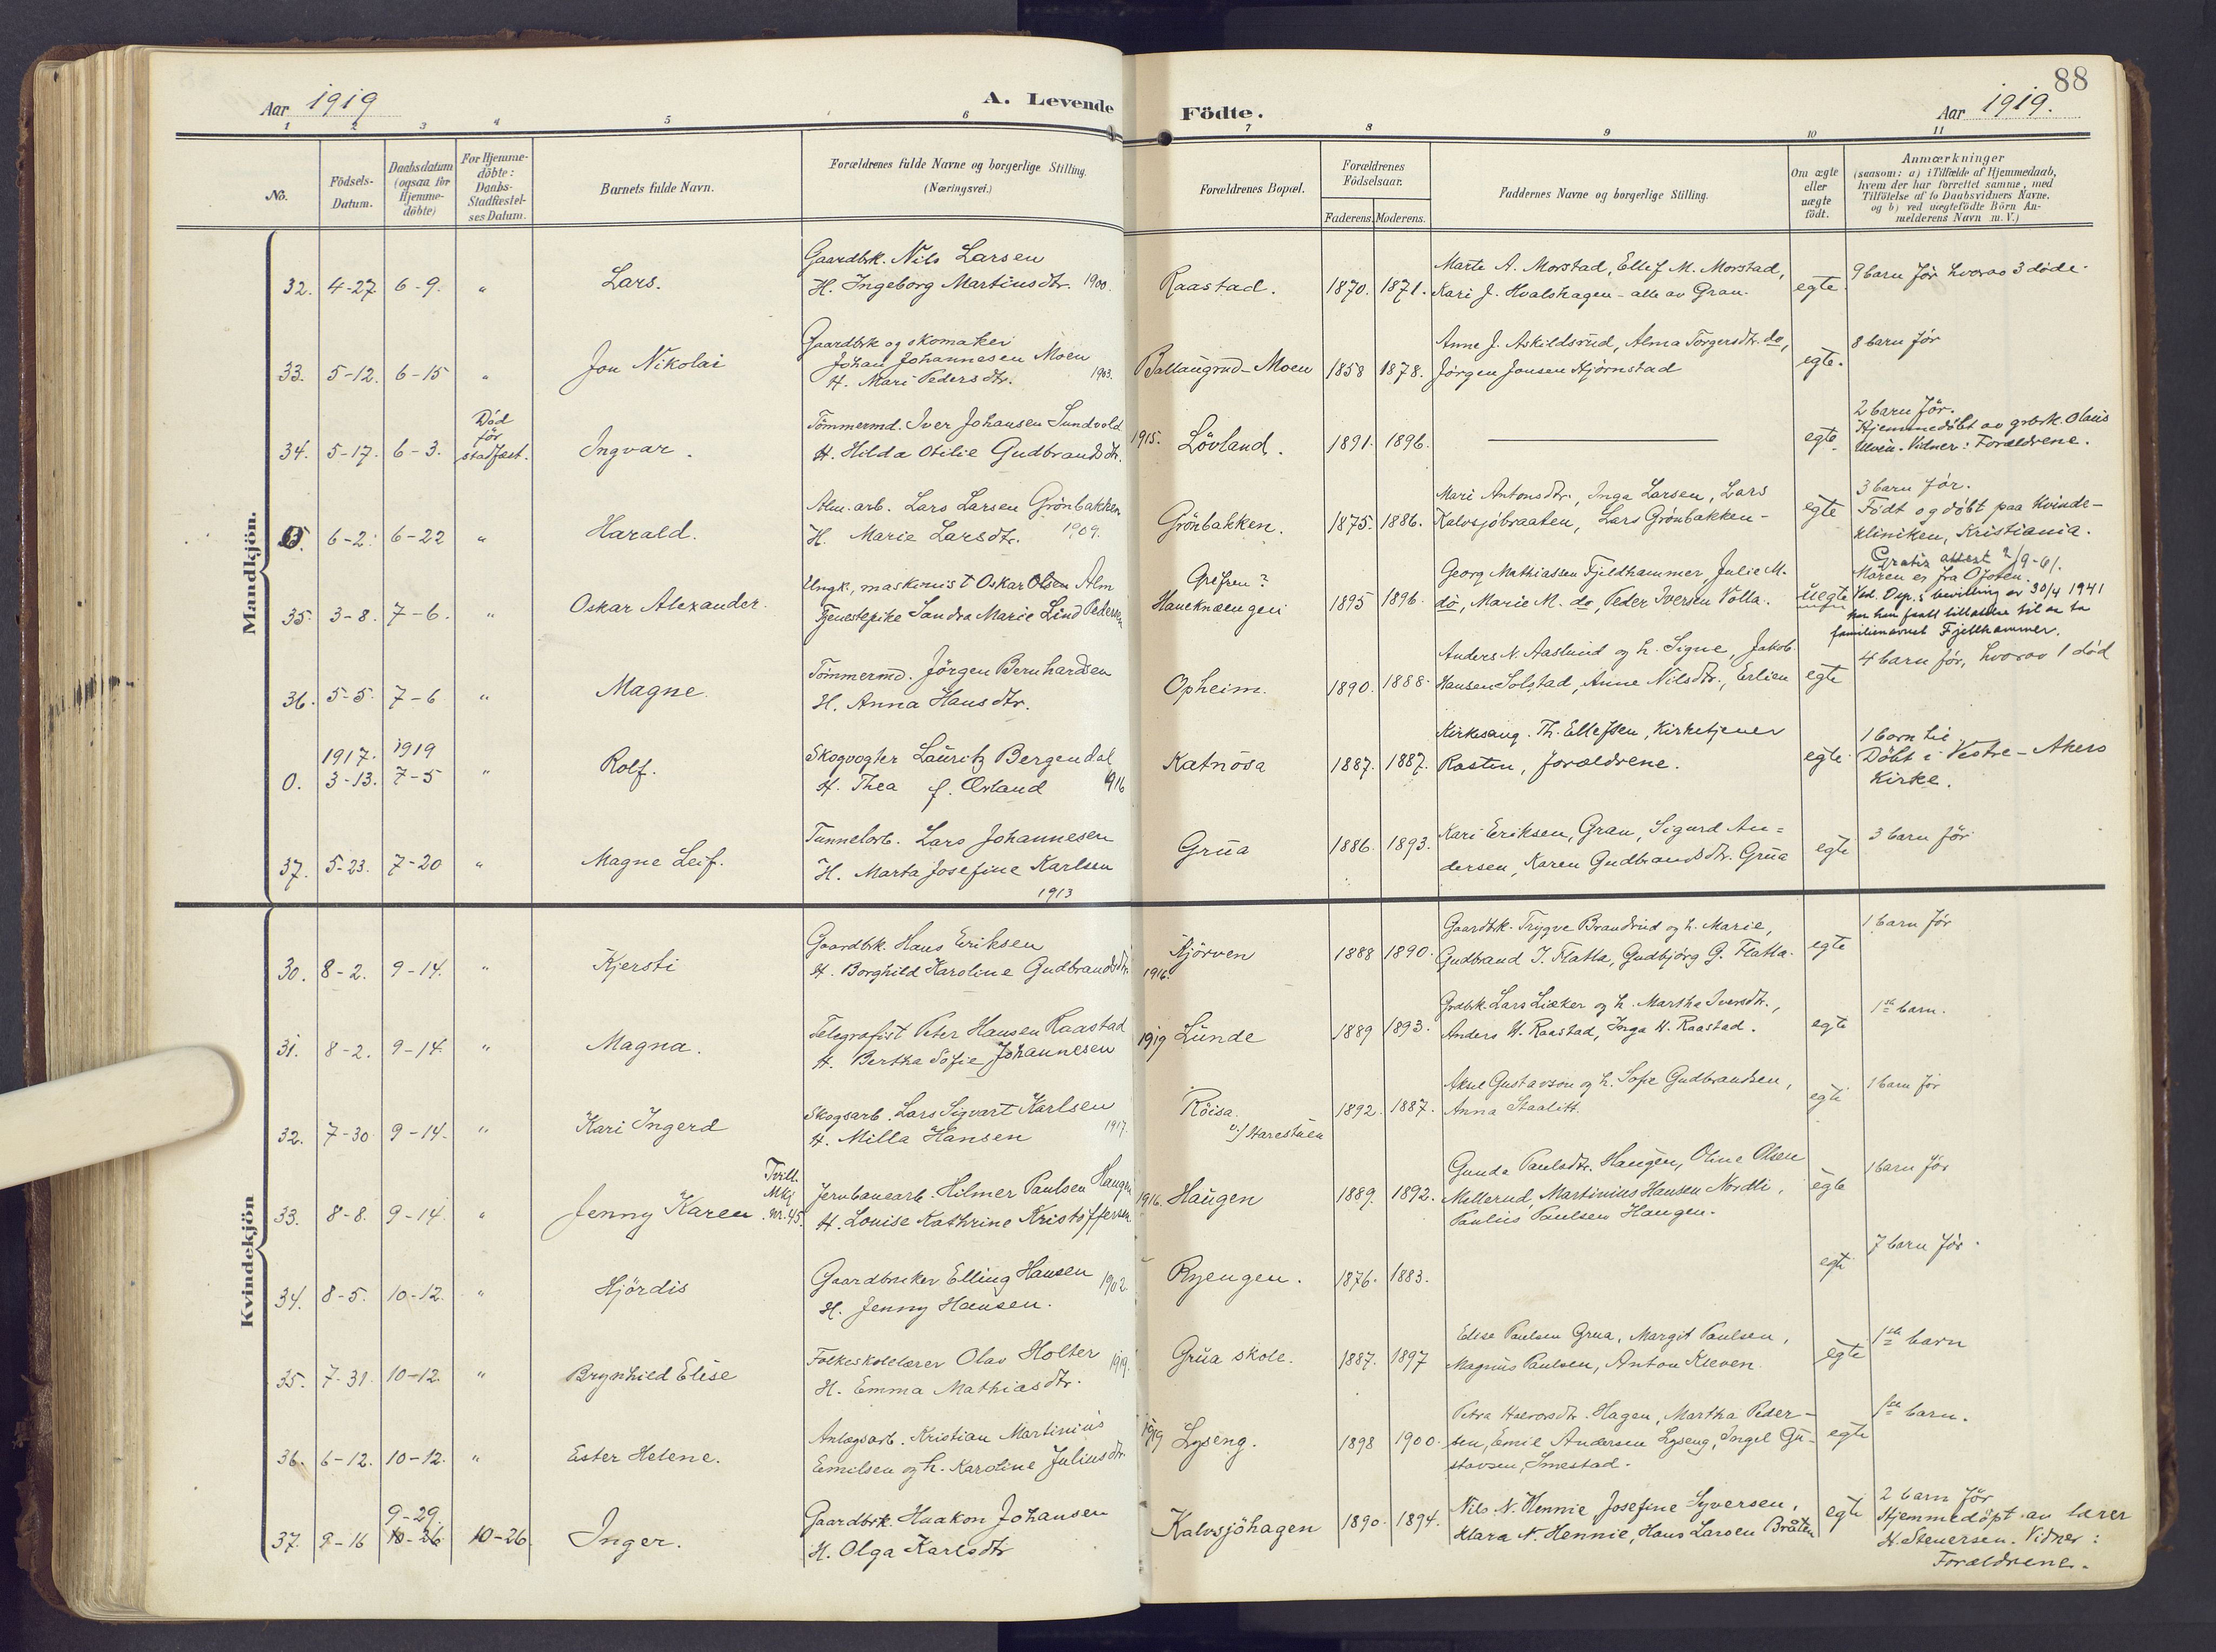 88
Aar 1919
A. Levende Födte.
Aar 1919.
1 2 3 4 5 6 7 8 9 10 11
No.
Födsels-Datum.
Daabsdatum (ogsaa for Hjemme-döbte)
For Hjemme-döbte: Daabs-Stadfæstel-ses Datum.
Barnets fulde Navn.
Forældrenes fulde Navne og borgerlige Stilling. (Næringsvei.)
Forældrenes Bopæl.
Forældrenes Födselsaar.
Faderens. Moderens.
Faddernes Navne og borgerlige Stilling.
Om ægte eller uægte födt.
Anmærkninger
(saasom: a) i Tilfælde af Hjemmedaab,
hvem der har forrettet samme, med
Tilföielse af to Daabsvidners Navne,
og b) ved uægtefödte Börn An-
melderens Navn m. V.)
Mandkjön.
32. 4-27 6-9. " Lars.
Gaardbrk. Nils Larsen
H. Ingeborg Martinsdtr. 1900.
Raastad. 1870. 1871.
Marte A. Morstad, Ellef M. Morstad,
Kari J. Hvalshagen - alle av Gran.
egte.
9 barn før hvorav 3 døde.
33. 5-12. 6-15 " Jon Nikolai
Gaardbrk og skomaker
Johan Johannesen Moen
H. Mari Pedersdtr. 1903.
Ballangrud-Moen 1858 1878.
Anne J. Askildsrud, Alma Torgersdtr. do,
Jørgen Jonsen Hjørnstad
egte.
8 barn før
34. 5-17. 6-3. Död för stadfest. Ingvar.
Tömmermd. Iver Johansen Sundvold
H. Hilda Otilie Gudbrandsdtr. 1915.
Lövland. 1891. 1896.
egte.
2 barn før.
Hjemmedøbt av grbrk. Olaus
Ulvin. Vidner: Forældrene.
6-2. 6-22 " Harald.
Alm. arb. Lars Larsen Grönbakken
H. Marie Larsdtr. 1909.
Grönbakken. 1875. 1886.
Mari Antonsdtr., Inga Larsen, Lars
Kalvsjöbraaten, Lars Grönbakken -
egte
3 barn før.
Født og døbt paa Kvinde-
kliniken, Kristiania.
35. 3-8. 7-6. " Oskar Alexander.
Ungk., maskinist Oskar Olsen Alm
Tjenestepike Sandra Marie Lind Pedersen
Grefsen?
1895 1896.
Georg Mathiassen Fjeldhammer, Julie M.
do, Marie M. do, Peder Iversen Volla.
uegte
Gratis attest 2/9-61.
Moren er fra Ofoten.
Ved. Dep.s bevilling av 30/4 1941
har han faatt tillatelse til aa ta
familienavnet Fjellhammer.
36. 5-5. 7-6 " Magne.
Tömmermd. Jörgen Bernhardsen
H. Anna Hansdtr.
Opheim. 1890. 1888.
Anders N. Aaslund og h. Signe, Jakob
Hansen Solstad, Anne Nilsdtr., Erlien
egte
4 barn før, hvorav 1 død
0. 1917. 3-13. 1919 7-5 " Rolf.
Skogvogter Lauritz Bergendal
H. Thea f. Ørland 1916
Katnösa 1887. 1887.
Kirkesang. Th. Ellefsen, Kirketjener
Rosten, forældrene.
egte
1 barn til
Döbt i Vestre-Akers
Kirke.
37. 5-23. 7-20 " Magne Leif.
Tunnelarb. Lars Johannesen
H. Marta Josefine Karlsen
1913
Grua 1886. 1893.
Kari Eriksen, Gran, Sigurd An=
dersen, Karen Gudbrandsdtr. Grua
egte
3 barn før
Kvindekjön
30. 8-2. 9-14. " Kjersti
Gaardbrk. Hans Eriksen
H. Borghild Karoline Gudbrandsdtr. 1916.
Kjörven 1888 1890.
Gaardbrk. Trygve Brandrud og h. Marie,
Gudbrand I. Flatla, Gudbjørg G. Flatla.
egte
1 barn før
31. 8-2. 9-14. " Magna.
Telegrafist Peter Hansen Raastad
H. Bertha Sofie Johannesen 1919
Lunde 1889 1893.
Grdbrk. Lars Liæker og h. Martha Iversdtr.,
Anders H. Raastad, Inga H. Raastad.
egte
1ste barn.
32. 7-30 9-14. " Kari Ingerd
Skogsarb. Lars Sigvart Karlsen
H. Milla Hansen 1917.
Röisa v/ Harestuen 1892. 1887.
Aksel Gustavson og h. Sofie Gudbrandsen,
Anna Staalitt.
egte
1 barn før
33. 8-8. 9-14. " Jenny Karen
Tvill. Mkj. nr. 45.
Jernbanearb. Hilmer Paulsen Haugen
H. Louise Kathrine Kristoffersen 1916.
Haugen 1889. 1892.
Gunda Paulsdtr. Haugen, Oline Olsen
Mellerud, Martinius Hansen Nordli,
Paulus Paulsen Haugen.
egte
1 barn før
34. 8-5. 10-12. " Hjördis
Gaardbruker Elling Hansen 1902.
H. Jenny Hansen.
Ryengen. 1876. 1883.
egte
7 barn før.
35. 7-31. 10-12. " Brynhild Elise
Folkeskolelærer Olav Holter 1919.
H. Emma Mathiasdtr.
Grua skole. 1887. 1897
Edise Paulsen Grua, Margit Paulsen,
Magnus Paulsen, Anton Kleven.
egte
1ste barn
36. 6-12. 10-12. " Ester Helene.
Anlægsarb. Kristian Martinius
Emilsen og h. Karoline Juliusdtr. 1919
Lyseng. 1898 1900.
Petra Halvorsdtr. Hagen, Martha Peder-
sen, Emil Andersen Lyseng, Ingel Gu-
stavsen, Smestad.
egte
1ste barn.
37. 9-16 9-29. 10-26 10-26. Inger.
Gaardbrk. Haakon Johansen
H. Olga Karlsdtr
Kalvsjöhagen 1890. 1894.
Nils N. Hennie, Josefine Syversen,
Klara N. Hennie, Hans Larsen Bråten
egte
2 barn før
Hjemmedöpt av lærer
H. Stenersen. Vidner:
Forældrene.